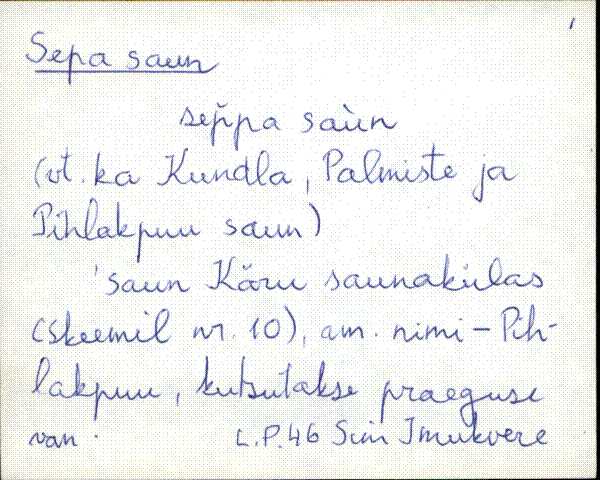 Sepa saun
sep̆pa saùn
(vt. ka Kundla, Palmiste ja
Pihlakpuu saun)
'saun Käru saunakülas
(skeemil nr. 10), am. nimi - Pih-
lakpuu, kutsutakse praeguse
van.
L.P. 46 Simi Imukvere